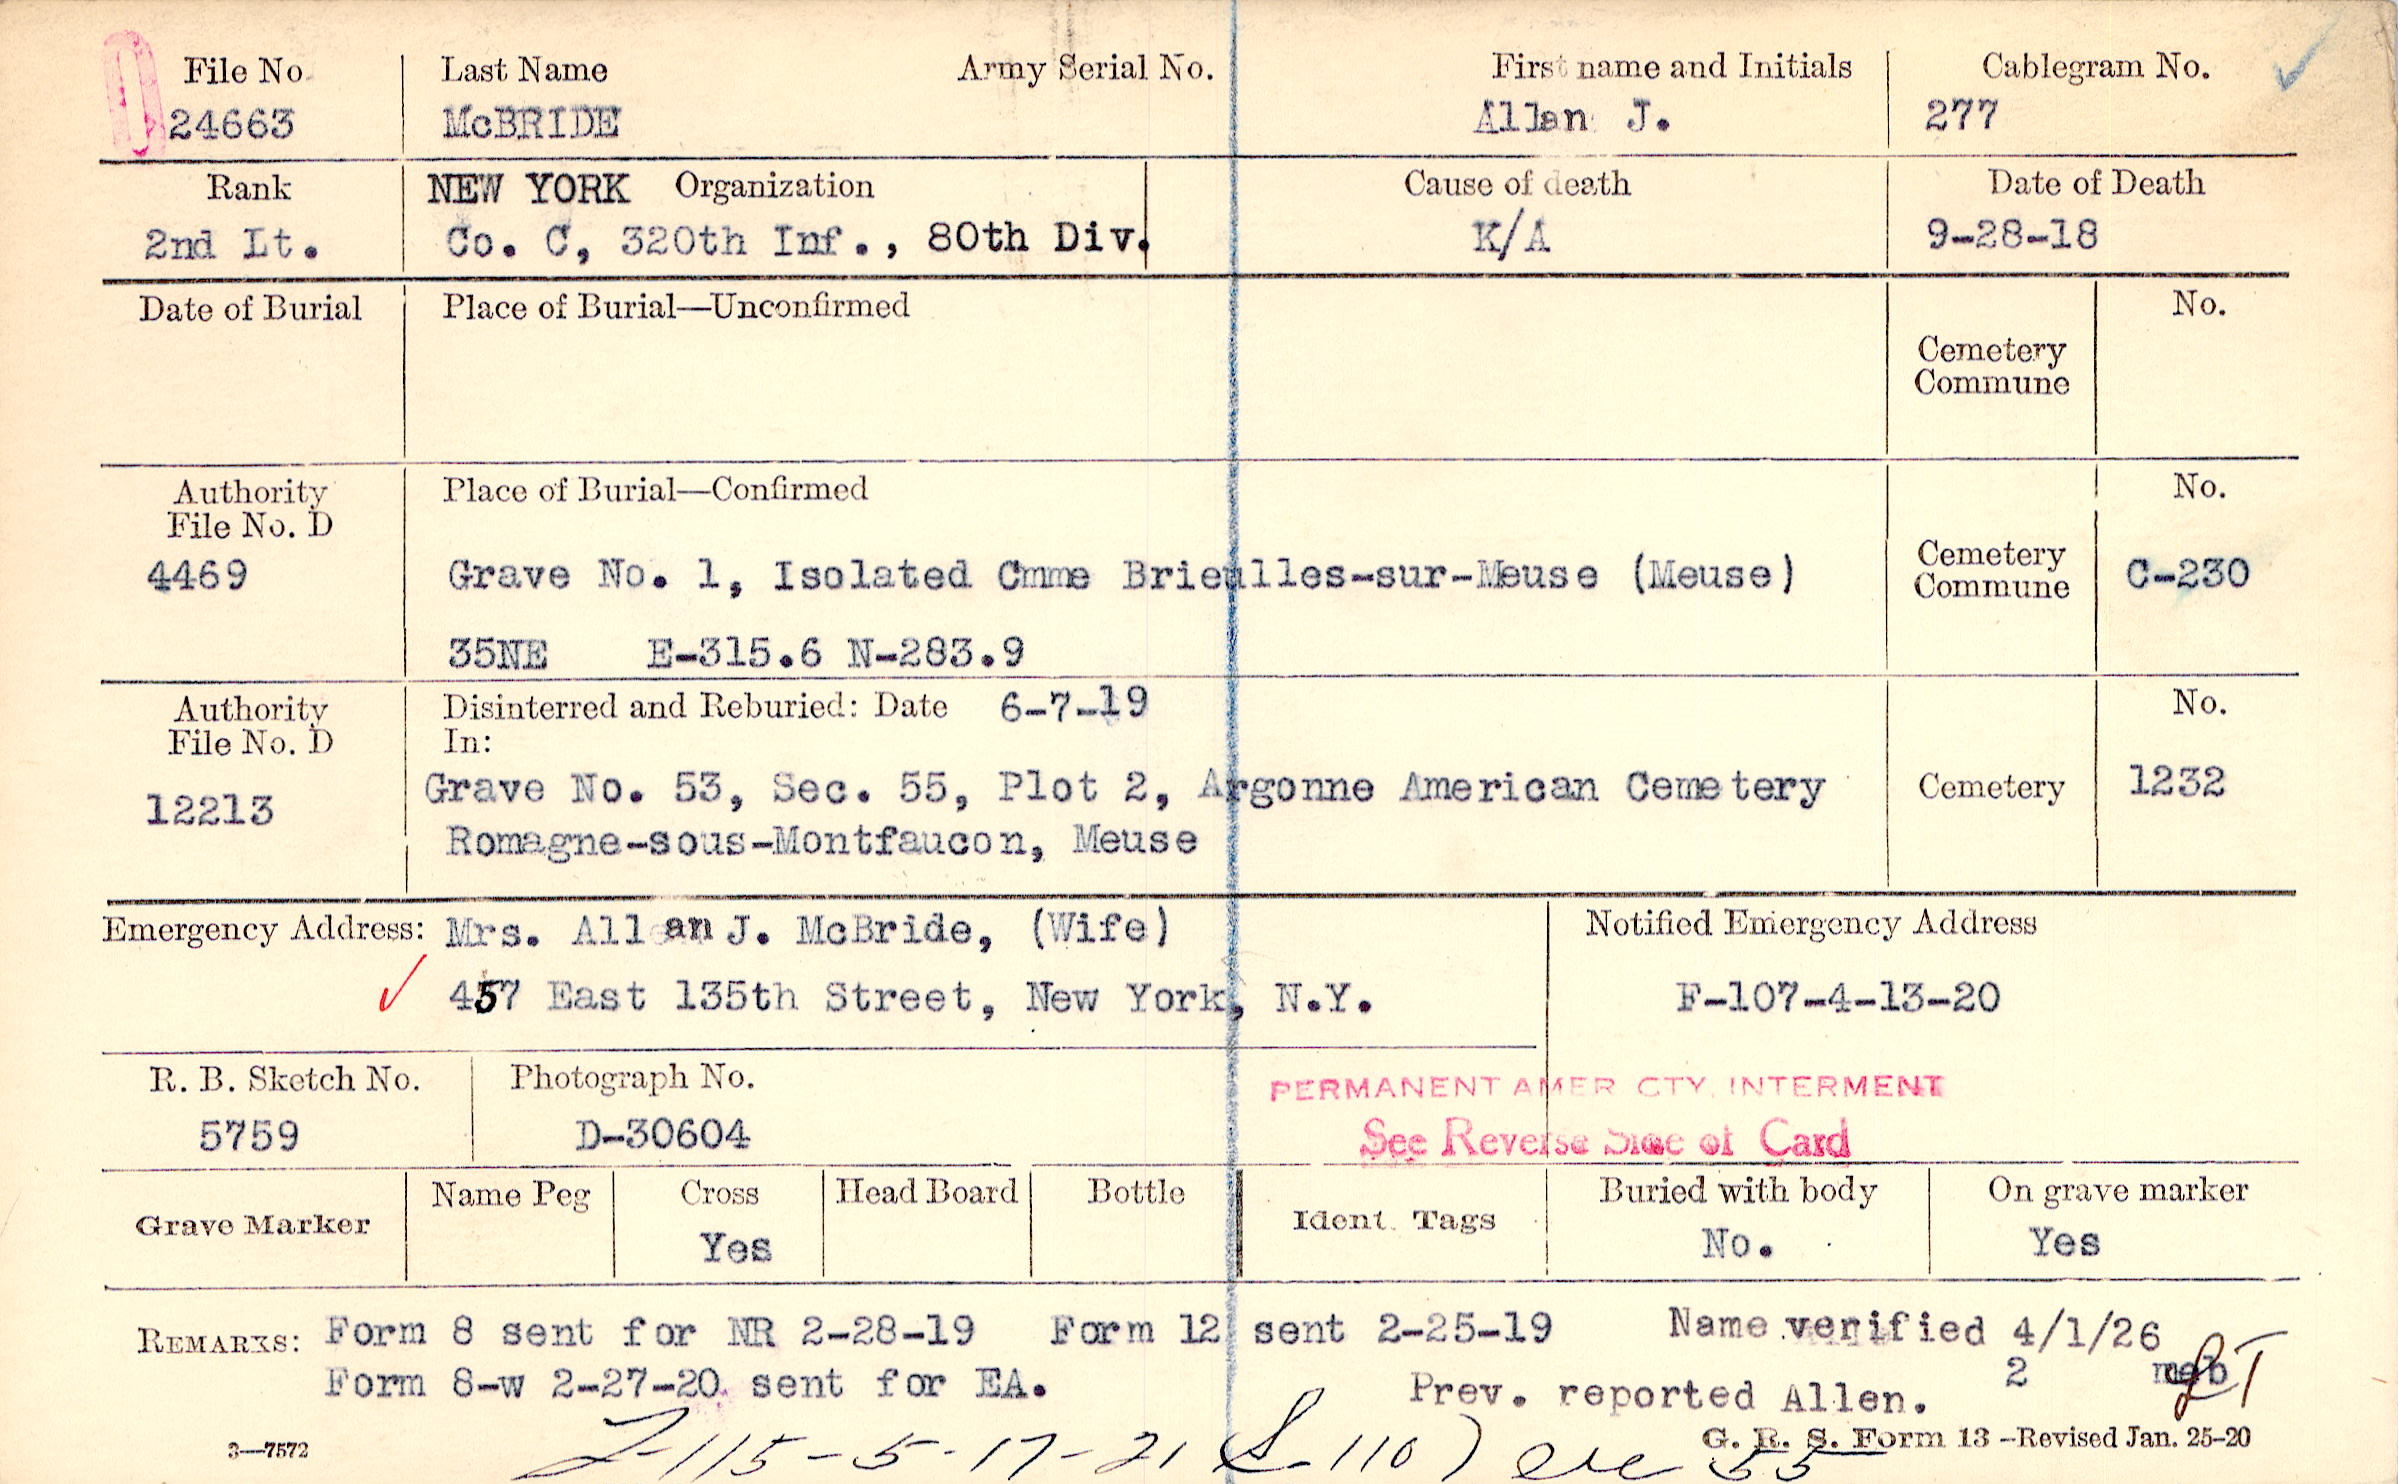 File No. Last Name Army Serial No. First name and Initials Cablegram No.
24663 McBRIDE Allan J. 277
Rank NEW YORK Organization Cause of death Date of Death
2nd Lt. Co. C, 320th Inf., 80th Div. K/A 9-28-18
Date of Burial Place of Burial—Unconfirmed No.
Cemetery
Commune
Authority Place of Burial—Confirmed No.
File No. D
4469 Grave No. 1, Isolated Cmme Brieulles-sur-Meuse (Meuse) Cemetery C-230
Commune
35NE E-315.6 N-283.9
Authority Disinterred and Reburied: Date 6-7-19 No.
File No. D In:
12213 Grave No. 53, Sec. 55, Plot 2, Argonne American Cemetery Cemetery 1232
Romagne-sous-Montfaucon, Meuse
Emergency Address: Mrs. Allan J. McBride, (Wife) Notified Emergency Address
457 East 135th Street, New York, N.Y. F-107-4-13-20
R. B. Sketch No. Photograph No. PERMANENT AMER CTY. INTERMENT
5759 D-30604 See Reverse Side of Card
Grave Marker Name Peg Cross Head Board Bottle Ident. Tags Buried with body On grave marker
Yes No. Yes
REMARKS: Form 8 sent for NR 2-28-19 Form 12 sent 2-25-19 Name verified 4/1/26
Form 8-w 2-27-20 sent for EA. Prev. reported Allen. 2
3—7572 G. R. S. Form 13—Revised Jan. 25-20
-115-5-17-21 (S-110) 55